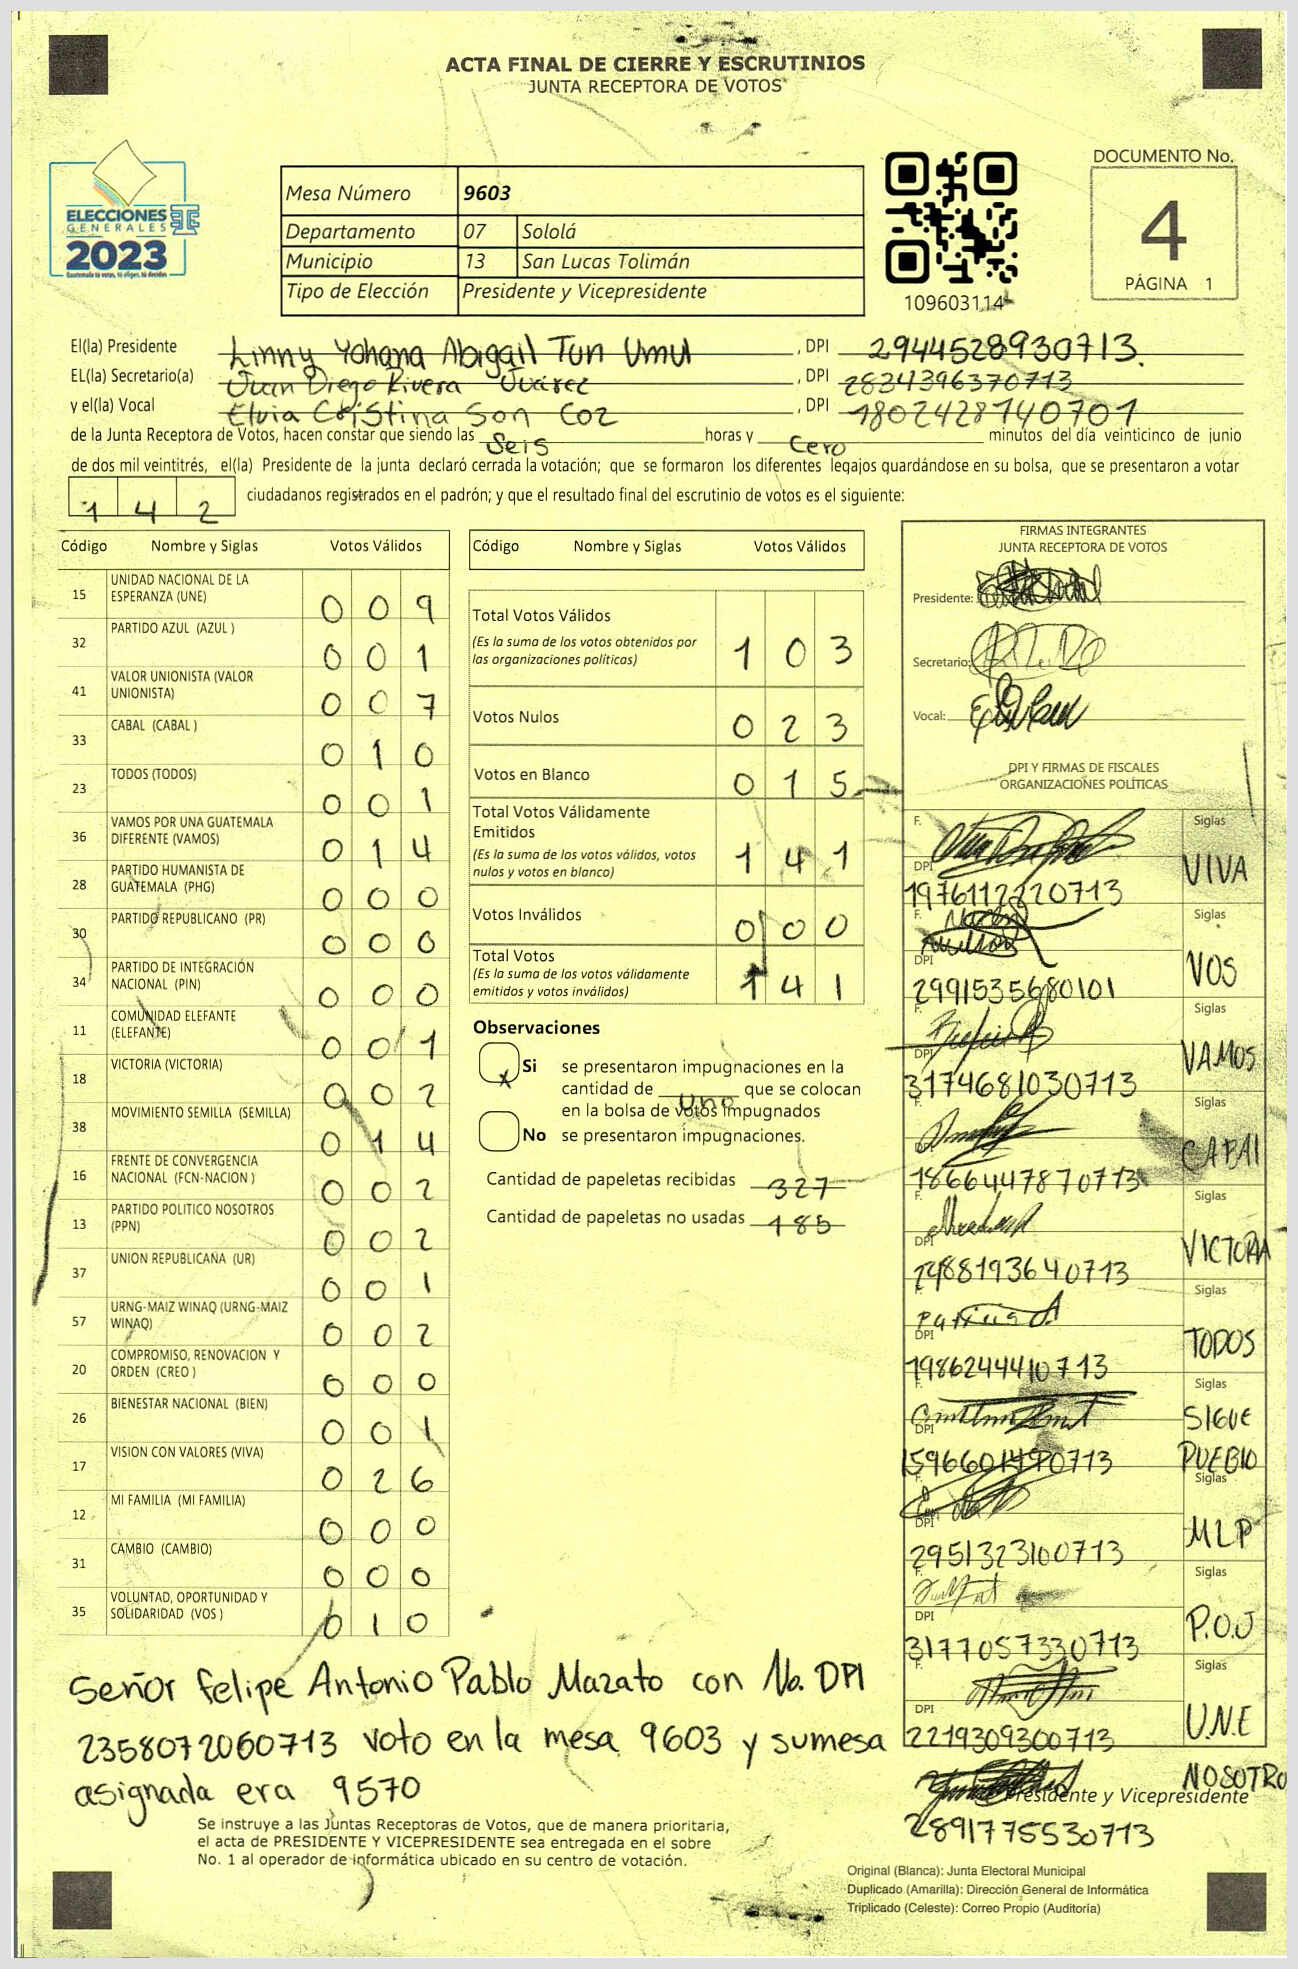 ACTA FINAL DE CIERRE Y ESCRUTINIOS
JUNTA RECEPTORA DE VOTOS
ELECCIONES
GENERALES
2023
Guatemala tú votas, tú eliges, tú decides
Mesa Número 9603
Departamento 07 Sololá
Municipio 13 San Lucas Tolimán
Tipo de Elección Presidente y Vicepresidente
109603114
DOCUMENTO No.
4
PÁGINA 1
El(la) Presidente Linny Yohana Abigail Tun Umul , DPI 2944528930713.
EL(la) Secretario(a) Juan Diego Rivera Juárez , DPI 2834396370713
y el(la) Vocal Elvia Cristina Son Coz , DPI 1802428140701
de la Junta Receptora de Votos, hacen constar que siendo las Seis horas y Cero minutos del día veinticinco de junio
de dos mil veintitrés, el(la) Presidente de la junta declaró cerrada la votación; que se formaron los diferentes legajos guardándose en su bolsa, que se presentaron a votar
1 4 2 ciudadanos registrados en el padrón; y que el resultado final del escrutinio de votos es el siguiente:
Código Nombre y Siglas Votos Válidos
15 UNIDAD NACIONAL DE LA ESPERANZA (UNE) 0 0 9
32 PARTIDO AZUL (AZUL ) 0 0 1
41 VALOR UNIONISTA (VALOR UNIONISTA) 0 0 7
33 CABAL (CABAL ) 0 1 0
23 TODOS (TODOS) 0 0 1
36 VAMOS POR UNA GUATEMALA DIFERENTE (VAMOS) 0 1 4
28 PARTIDO HUMANISTA DE GUATEMALA (PHG) 0 0 0
30 PARTIDO REPUBLICANO (PR) 0 0 0
34 PARTIDO DE INTEGRACIÓN NACIONAL (PIN) 0 0 0
11 COMUNIDAD ELEFANTE (ELEFANTE) 0 0 1
18 VICTORIA (VICTORIA) 0 0 2
38 MOVIMIENTO SEMILLA (SEMILLA) 0 1 4
16 FRENTE DE CONVERGENCIA NACIONAL (FCN-NACION ) 0 0 2
13 PARTIDO POLITICO NOSOTROS (PPN) 0 0 2
37 UNION REPUBLICANA (UR) 0 0 1
57 URNG-MAIZ WINAQ (URNG-MAIZ WINAQ) 0 0 2
20 COMPROMISO, RENOVACION Y ORDEN (CREO ) 0 0 0
26 BIENESTAR NACIONAL (BIEN) 0 0 1
17 VISION CON VALORES (VIVA) 0 2 6
12 MI FAMILIA (MI FAMILIA) 0 0 0
31 CAMBIO (CAMBIO) 0 0 0
35 VOLUNTAD, OPORTUNIDAD Y SOLIDARIDAD (VOS ) 0 1 0
Código Nombre y Siglas Votos Válidos
Total Votos Válidos
(Es la suma de los votos obtenidos por
las organizaciones políticas) 1 0 3
Votos Nulos 0 2 3
Votos en Blanco 0 1 5
Total Votos Válidamente
Emitidos
(Es la suma de los votos válidos, votos
nulos y votos en blanco) 1 4 1
Votos Inválidos 0 0 0
Total Votos
(Es la suma de los votos válidamente
emitidos y votos inválidos) 1 4 1
Observaciones
x Si se presentaron impugnaciones en la
cantidad de uno que se colocan
en la bolsa de votos impugnados
No se presentaron impugnaciones.
Cantidad de papeletas recibidas 327
Cantidad de papeletas no usadas 185
FIRMAS INTEGRANTES
JUNTA RECEPTORA DE VOTOS
Presidente:
Secretario:
Vocal:
DPI Y FIRMAS DE FISCALES
ORGANIZACIONES POLÍTICAS
F. Siglas
DPI VIVA
1976112220713
F. Siglas
DPI VOS
2991535680101
F. Siglas
DPI VAMOS
3174681030713
Siglas
CABAL
1866447870713
F. Siglas
DPI VICTORIA
2488193640713
F. Siglas
DPI TODOS
1986244410713
F. Siglas
DPI SIGUE
PUEBLO
1596601490713
F. Siglas
DPI MLP
2951323100713
F. Siglas
DPI P.O.J
3177057330713
F. Siglas
DPI U.N.E
2219309300713
NOSOTRO
Presidente y Vicepresidente
2891775530713
Señor Felipe Antonio Pablo Mazato con No. DPI
2358072060713 voto en la mesa 9603 y su mesa
asignada era 9570
Se instruye a las Juntas Receptoras de Votos, que de manera prioritaria,
el acta de PRESIDENTE Y VICEPRESIDENTE sea entregada en el sobre
No. 1 al operador de informática ubicado en su centro de votación.
Original (Blanca): Junta Electoral Municipal
Duplicado (Amarilla): Dirección General de Informática
Triplicado (Celeste): Correo Propio (Auditoría)